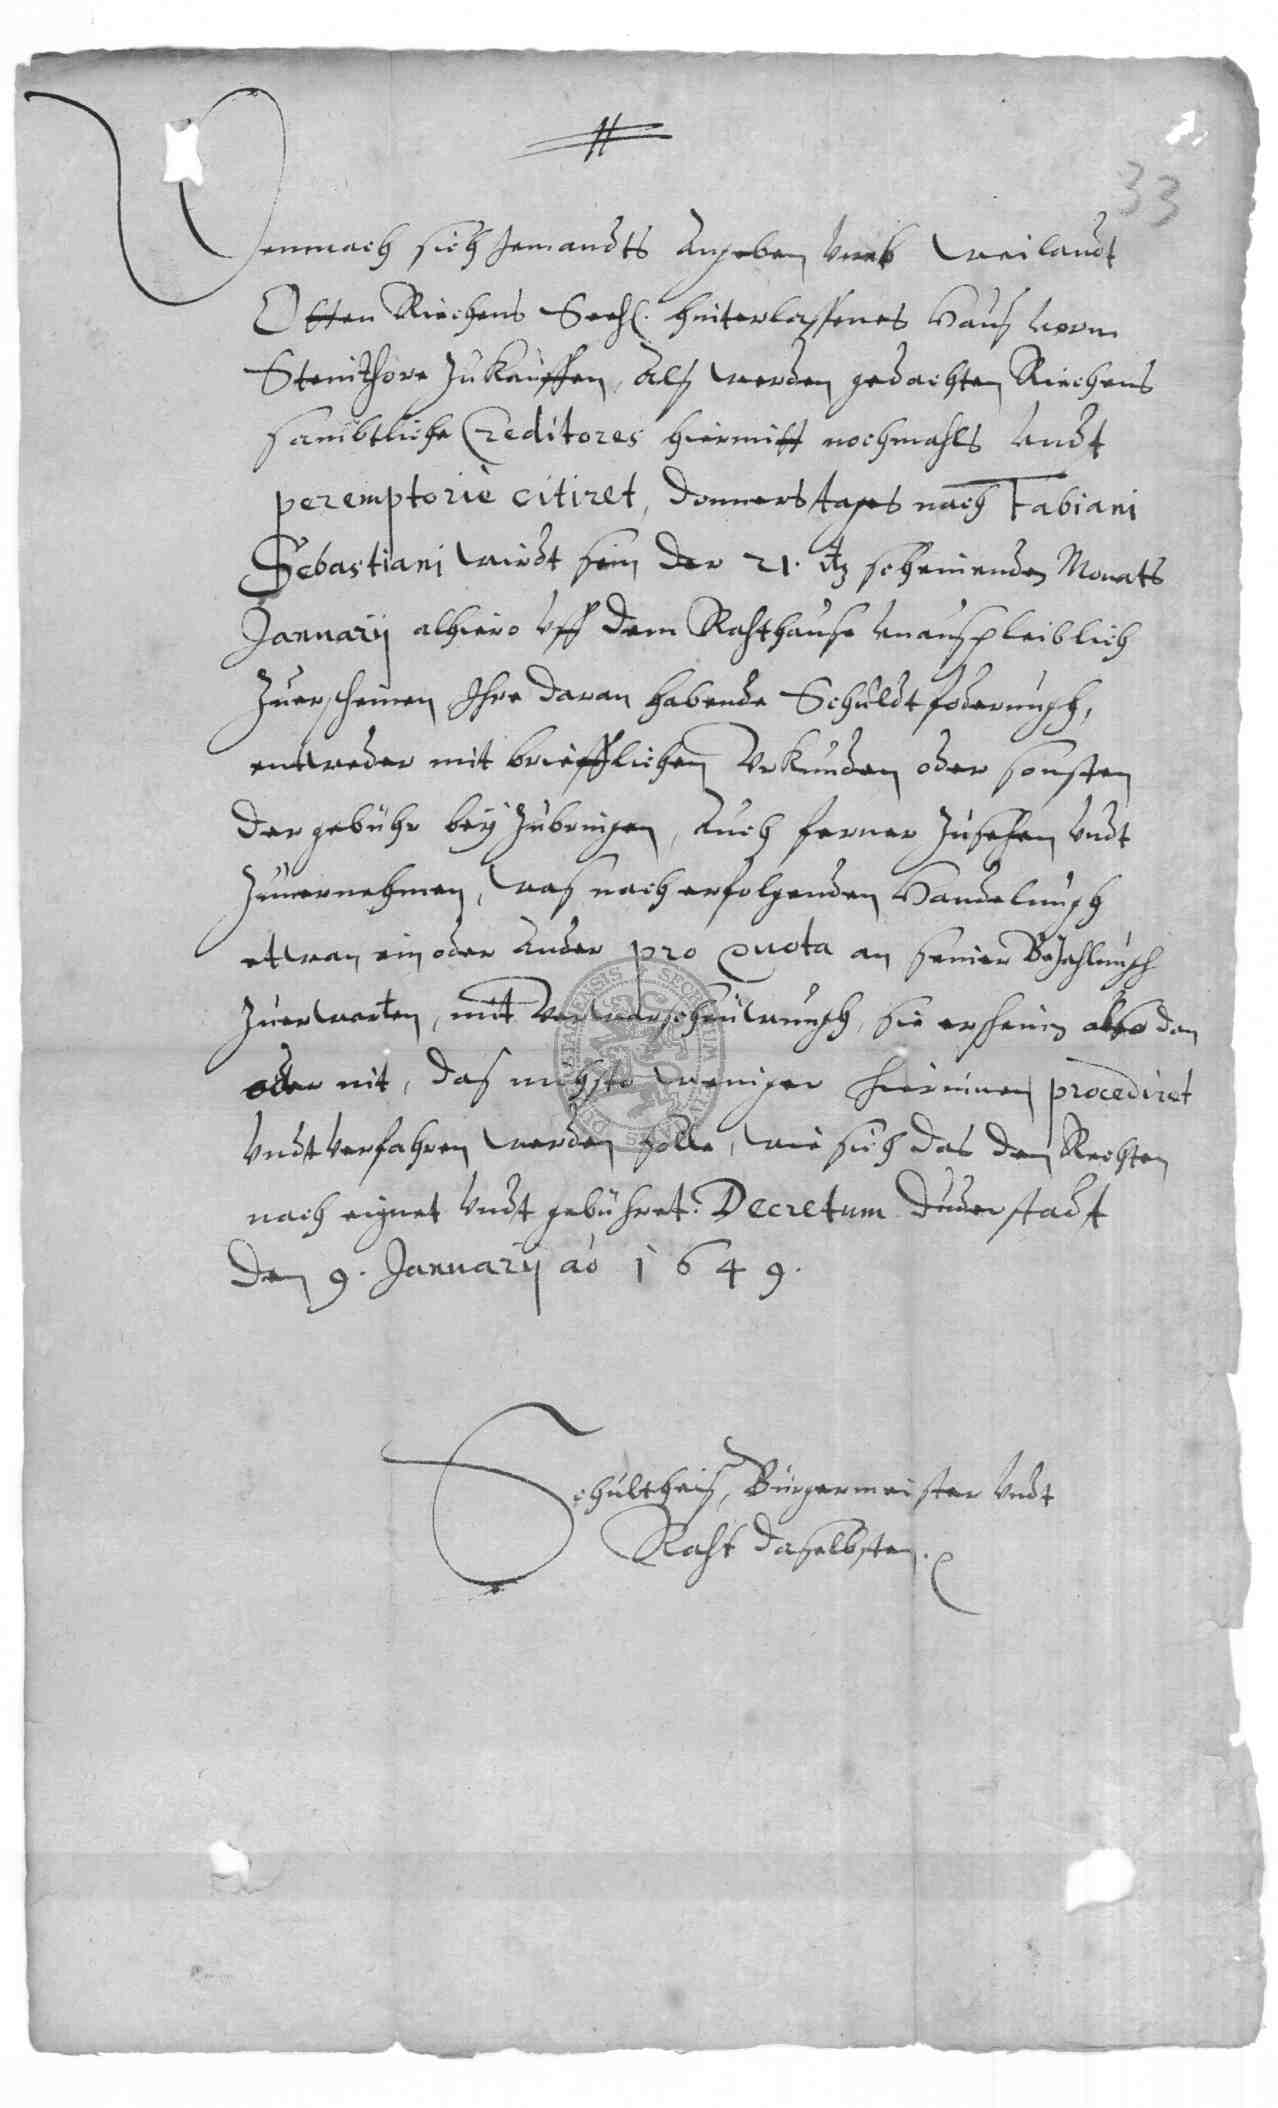 33
Demnach sich Jemandts angeben umb weilandt
Otten Riechens Seehl. hinterlassenes Hauß vorm
Steinthore zu Kauffen, Alß werden gedachten Riechens
sambtliche Creditores hiermitt nochmahls undt
peremptorie citiret, donnerstages nach Fabiani
Sebastiani wirdt sein der 21. itz scheinenden Monats
Januarij alhiero uff dem Rahthause unauspleiblich
zuerscheinen Ihre daran habende Schuldtfoderungh,
entweder mit brieflichen Urkunden oder sonsten
der gebühr bey zubringen, Auch ferner zusehen undt
zuvernehmen, was nach erfolgenden Handelungh
etwan ein oder ander pro quota an seiner Bezahlungh
zuerwarten, mit der sie erscheinen also dan
oder nit, das nichsto weniger hierinnen procediret
undt verfahren werden solle, wie sich das den Rechten
nach eignet undt gebühret. Decretum Duderstadt
den 9. Januarij ao 1649.
Schultheiß, Bürgermeister undt
Raht daselbsten.